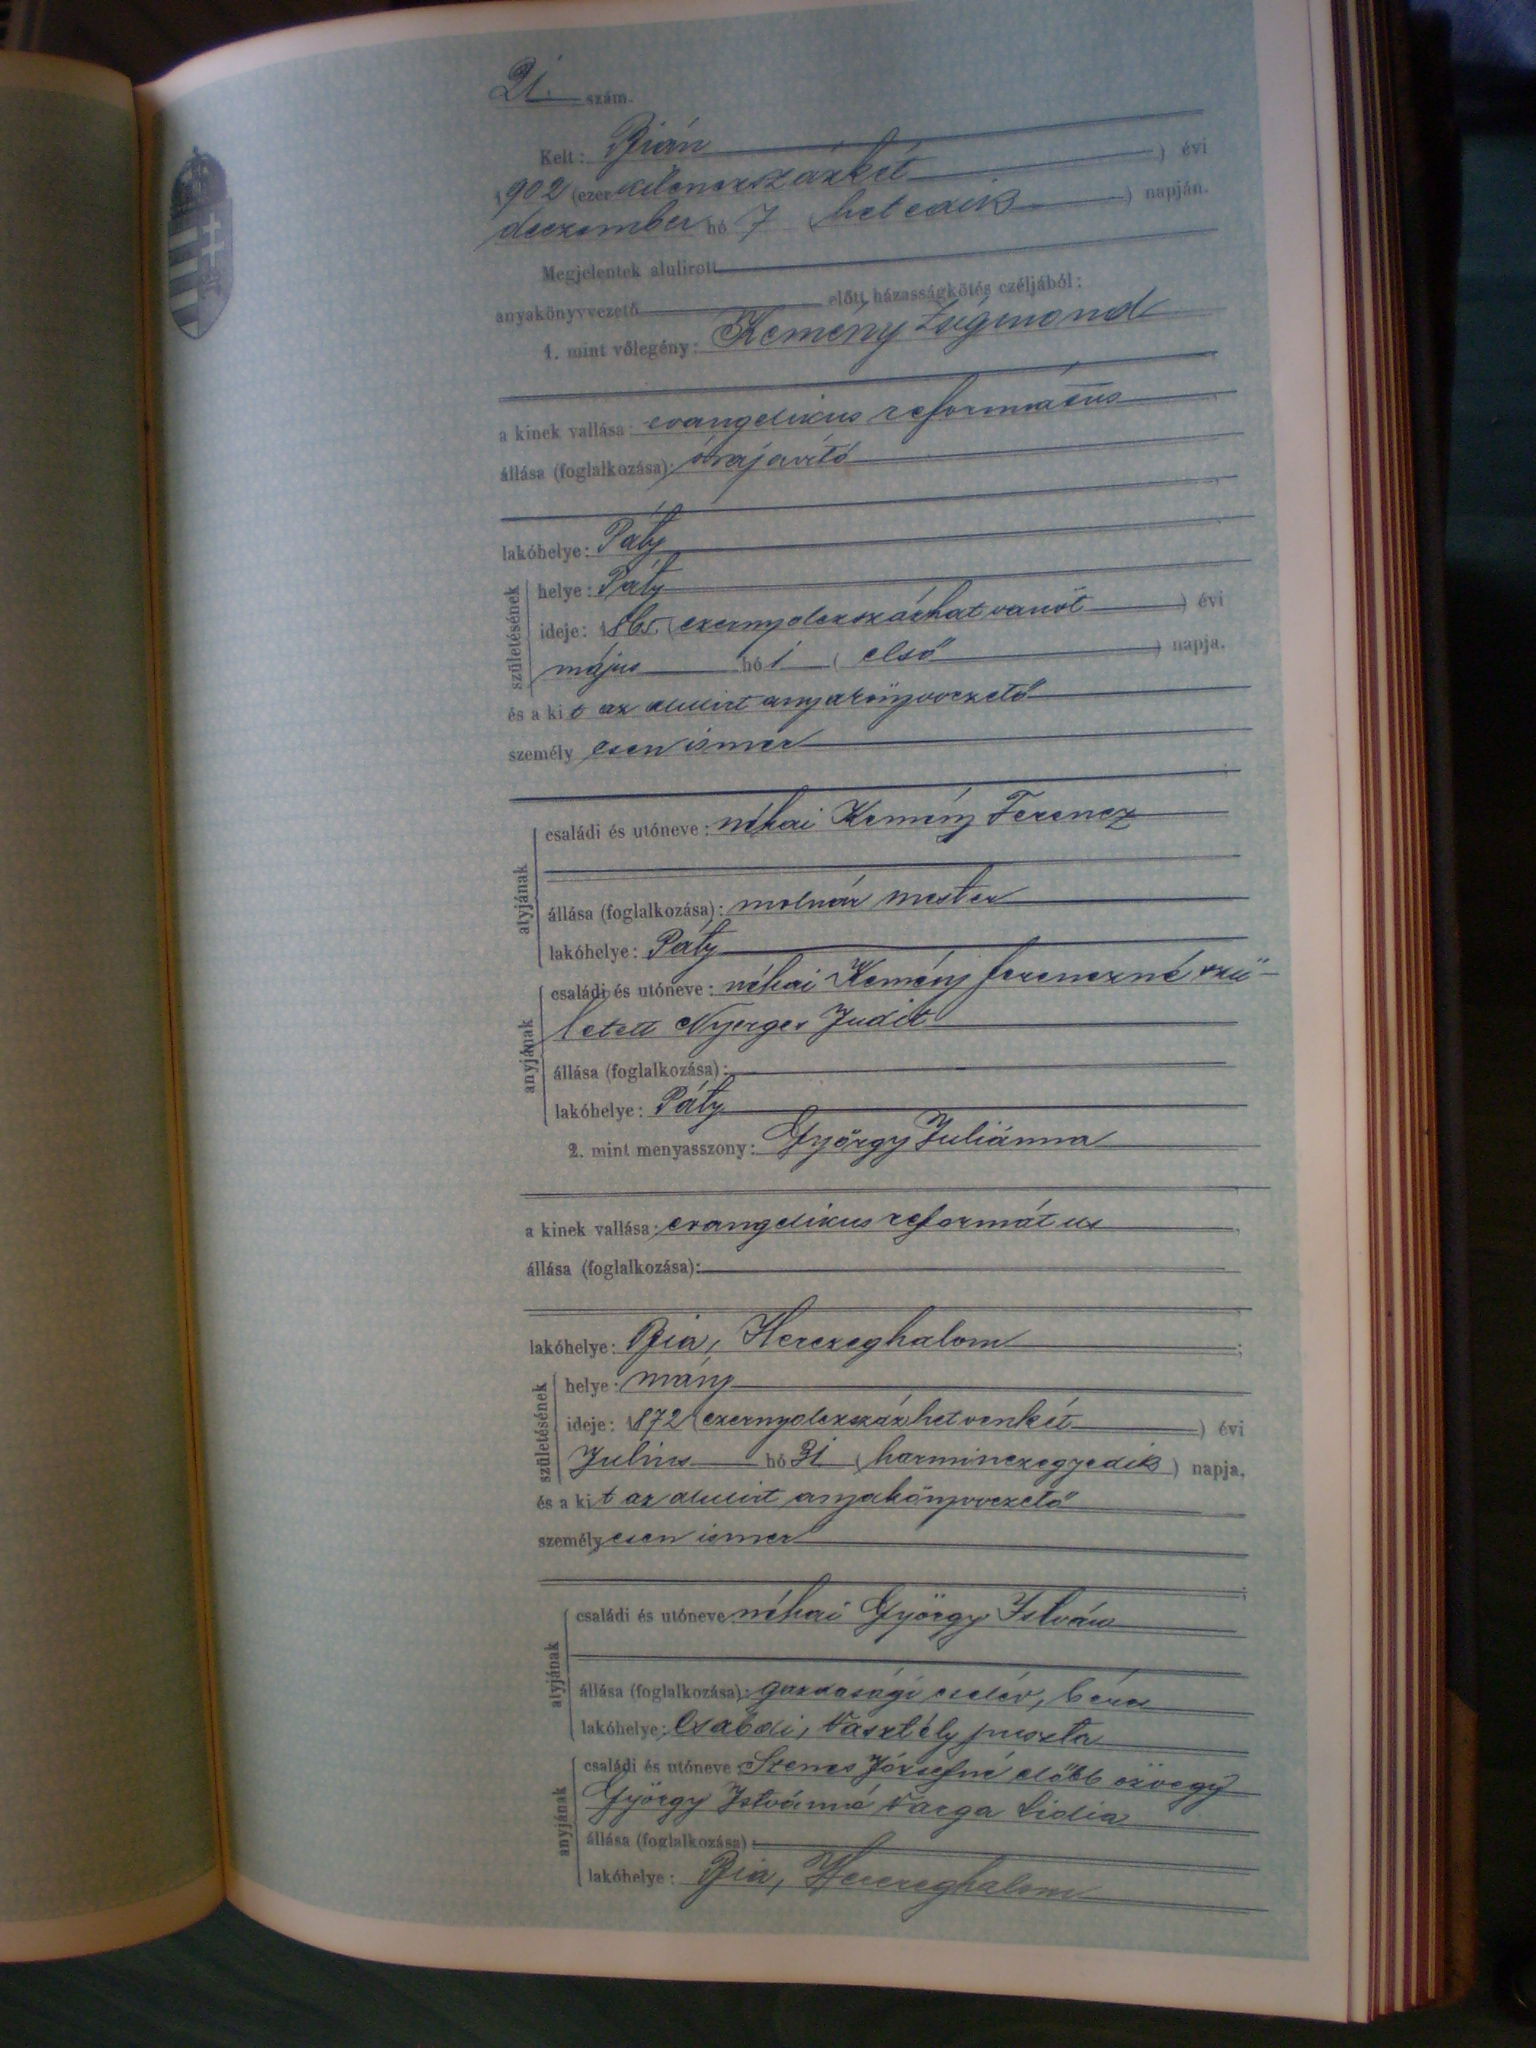 21. szám.
Kelt: Bián
1902 (ezerkilenczszázkét) évi
deczember hó 7 (hetedik) napján.
Megjelentek alulirott
anyakönyvvezető előtt házasságkötés czéljából:
1. mint vőlegény: Kemény Zsigmond
a kinek vallása: evangelikus református
állása (foglalkozása): órajavító
lakóhelye: Páty
születésének
helye: Páty
ideje: 1865. (ezernyolczszázhatvanöt) évi
május hó 1 (első) napja.
és a kit az alulirt anyakönyvvezető
személyesen ismer
atyjának
családi és utóneve: néhai Kemény Ferencz
állása (foglalkozása): molnár mester
lakóhelye: Páty
anyjának
családi és utóneve: néhai Kemény Ferenczné szü-
letett Nyerges Judit
állása (foglalkozása):
lakóhelye: Páty
2. mint menyasszony: György Juliánna
a kinek vallása: evangelikus református
állása (foglalkozása):
lakóhelye: Bia, Herczeghalom
születésének
helye: Mány
ideje: 1872 (ezernyolczszázhetvenkét) évi
Julius hó 31 (harminczegyedik) napja,
és a kit az alulirt anyakönyvvezető
személyesen ismer
atyjának
családi és utóneve néhai György István
állása (foglalkozása): gazdasági cseléd, béres
lakóhelye: Csabdi, Vasztély puszta
anyjának
családi és utóneve: Szenes Józsefné előbb özvegy
György Istvánné Varga Lidia
állása (foglalkozása):
lakóhelye: Bia, Herczeghalom